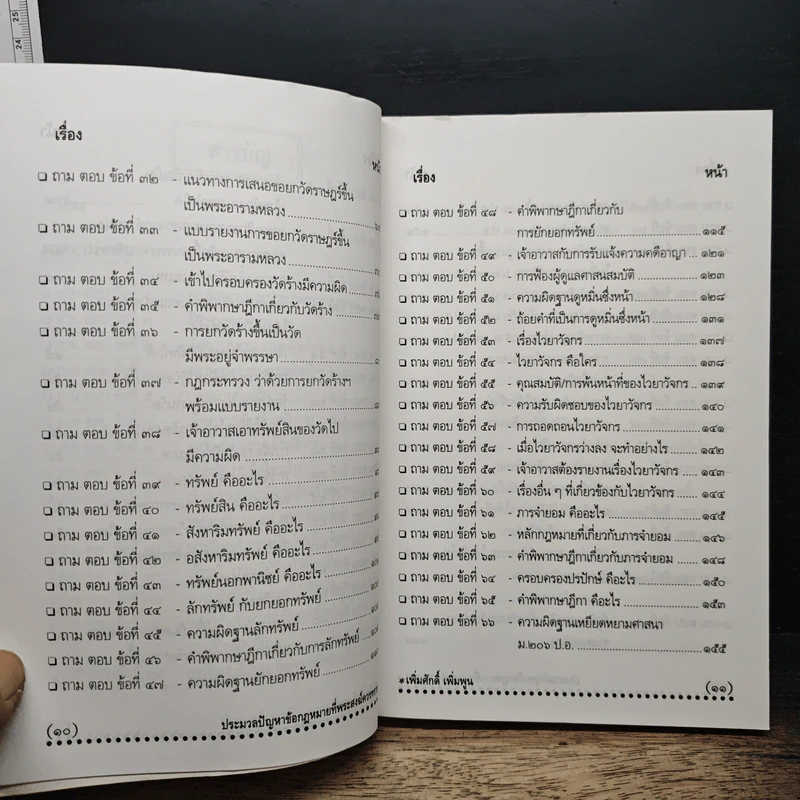 เรื่อง
❏ ถาม ตอบ ข้อที่ ๓๒ - แนวทางการเสนอขอยกวัดราษฎร์ขึ้น
เป็นพระอารามหลวง
❏ ถาม ตอบ ข้อที่ ๓๓ - แบบรายงานการขอยกวัดราษฎร์ขึ้น
เป็นพระอารามหลวง
❏ ถาม ตอบ ข้อที่ ๓๔ - เข้าไปครอบครองวัดร้างมีความผิด
❏ ถาม ตอบ ข้อที่ ๓๕ - คำพิพากษาฎีกาเกี่ยวกับวัดร้าง
❏ ถาม ตอบ ข้อที่ ๓๖ - การยกวัดร้างขึ้นเป็นวัด
มีพระอยู่จำพรรษา
❏ ถาม ตอบ ข้อที่ ๓๗ - กฎกระทรวง ว่าด้วยการยกวัดร้างฯ
พร้อมแบบรายงาน
❏ ถาม ตอบ ข้อที่ ๓๘ - เจ้าอาวาสเอาทรัพย์สินของวัดไป
มีความผิด
❏ ถาม ตอบ ข้อที่ ๓๙ - ทรัพย์ คืออะไร
❏ ถาม ตอบ ข้อที่ ๔๐ - ทรัพย์สิน คืออะไร
❏ ถาม ตอบ ข้อที่ ๔๑ - สังหาริมทรัพย์ คืออะไร
❏ ถาม ตอบ ข้อที่ ๔๒ - อสังหาริมทรัพย์ คืออะไร
❏ ถาม ตอบ ข้อที่ ๔๓ - ทรัพย์นอกพาณิชย์ คืออะไร
❏ ถาม ตอบ ข้อที่ ๔๔ - ลักทรัพย์ กับยกยอกทรัพย์
❏ ถาม ตอบ ข้อที่ ๔๕ - ความผิดฐานลักทรัพย์
❏ ถาม ตอบ ข้อที่ ๔๖ - คำพิพากษาฎีกาเกี่ยวกับการลักทรัพย์
❏ ถาม ตอบ ข้อที่ ๔๗ - ความผิดฐานยักยอกทรัพย์
(๑๐) ประมวลปัญหาข้อกฎหมายที่พระสงฆ์ควรทราบ
เรื่อง หน้า
❏ ถาม ตอบ ข้อที่ ๔๘ - คำพิพากษาฎีกาเกี่ยวกับ
การยักยอกทรัพย์ ๑๑๕
❏ ถาม ตอบ ข้อที่ ๔๙ - เจ้าอาวาสกับการรับแจ้งความคดีอาญา ๑๒๑
❏ ถาม ตอบ ข้อที่ ๕๐ - การฟ้องผู้ดูแลศาสนสมบัติ ๑๒๓
❏ ถาม ตอบ ข้อที่ ๕๑ - ความผิดฐานดูหมิ่นซึ่งหน้า ๑๒๘
❏ ถาม ตอบ ข้อที่ ๕๒ - ถ้อยคำที่เป็นการดูหมิ่นซึ่งหน้า ๑๓๑
❏ ถาม ตอบ ข้อที่ ๕๓ - เรื่องไวยาวัจกร ๑๓๗
❏ ถาม ตอบ ข้อที่ ๕๔ - ไวยาวัจกร คือใคร ๑๓๘
❏ ถาม ตอบ ข้อที่ ๕๕ - คุณสมบัติ/การพ้นหน้าที่ของไวยาวัจกร ๑๓๙
❏ ถาม ตอบ ข้อที่ ๕๖ - ความรับผิดชอบของไวยาวัจกร ๑๔๐
❏ ถาม ตอบ ข้อที่ ๕๗ - การถอดถอนไวยาวัจกร ๑๔๑
❏ ถาม ตอบ ข้อที่ ๕๘ - เมื่อไวยาวัจกรว่างลง จะทำอย่างไร ๑๔๒
❏ ถาม ตอบ ข้อที่ ๕๙ - เจ้าอาวาสต้องรายงานเรื่องไวยาวัจกร ๑๔๓
❏ ถาม ตอบ ข้อที่ ๖๐ - เรื่องอื่น ๆ ที่เกี่ยวข้องกับไวยาวัจกร ๑๔๔
❏ ถาม ตอบ ข้อที่ ๖๑ - ภารจำยอม คืออะไร ๑๔๕
❏ ถาม ตอบ ข้อที่ ๖๒ - หลักกฎหมายที่เกี่ยวกับภารจำยอม ๑๔๖
❏ ถาม ตอบ ข้อที่ ๖๓ - คำพิพากษาฎีกาเกี่ยวกับภารจำยอม ๑๔๘
❏ ถาม ตอบ ข้อที่ ๖๔ - ครอบครองปรปักษ์ คืออะไร ๑๕๐
❏ ถาม ตอบ ข้อที่ ๖๕ - คำพิพากษาฎีกา คืออะไร ๑๕๓
❏ ถาม ตอบ ข้อที่ ๖๖ - ความผิดฐานเหยียดหยามศาสนา
ม.๒๐๖ ป.อ. ๑๕๕
*เพิ่มศักดิ์ เพิ่มพูน (๑๑)